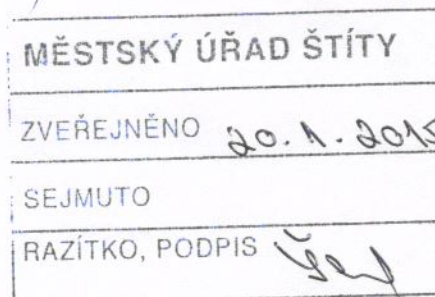 MĚSTSKÝ ÚŘAD ŠTÍTY
ZVEŘEJNĚNO 20. 1. 2015
SEJMUTO
RAZÍTKO, PODPIS